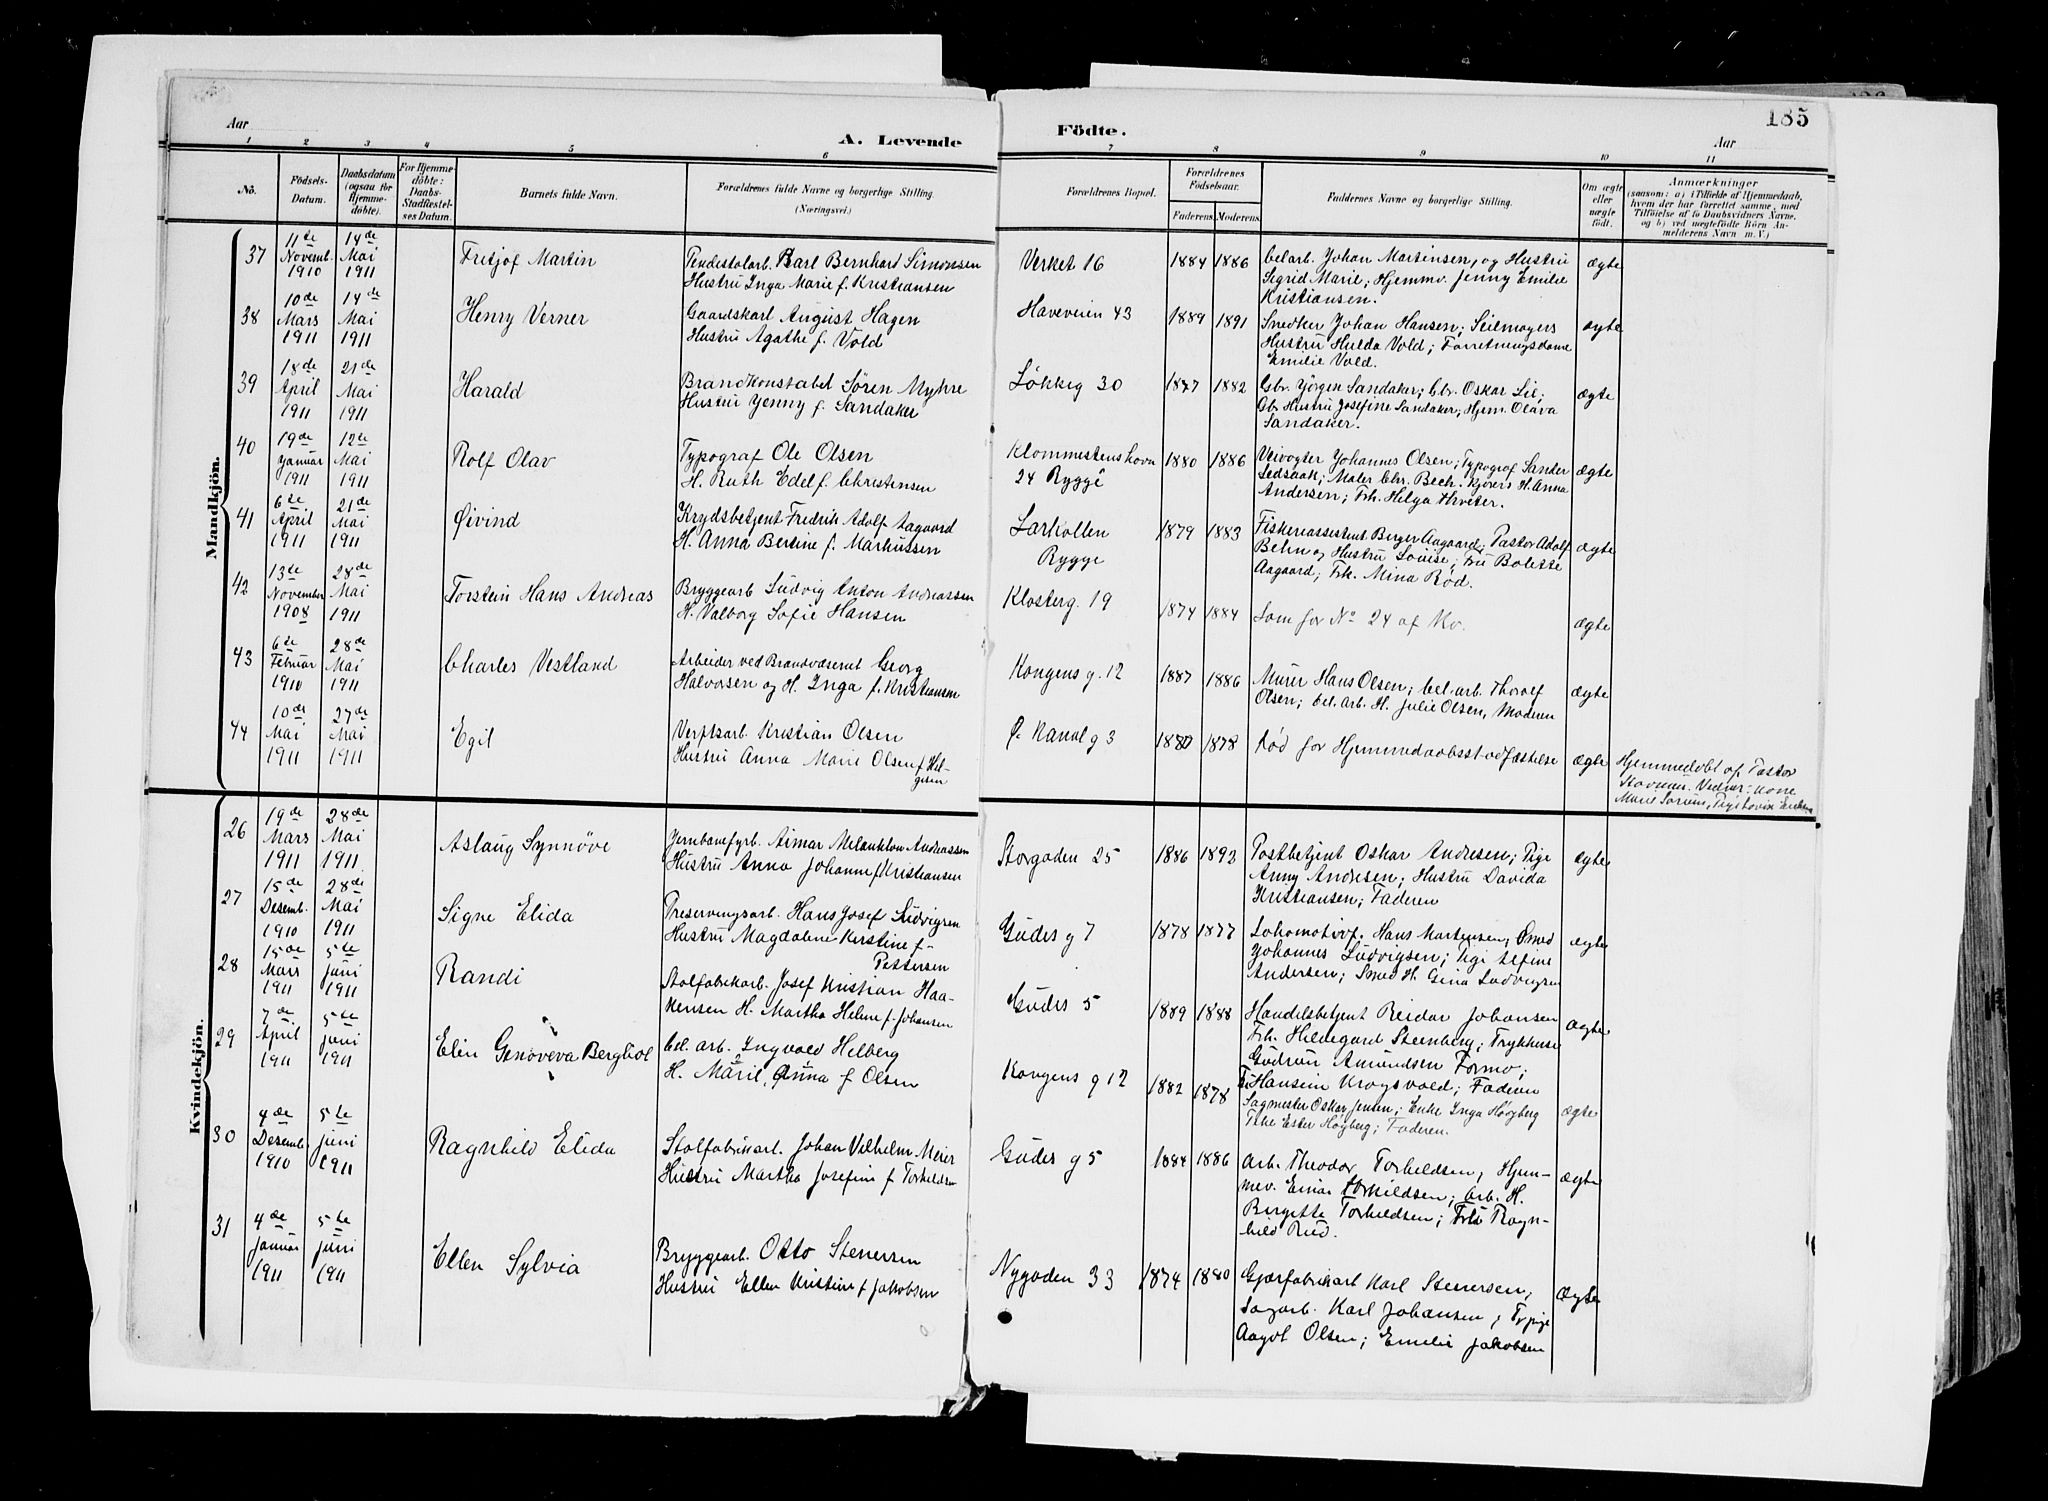 185
Aar
A. Levende
Födte.
Aar
1 2 3 4 5 6 7 8 9 10 11
No.
Födsels-
Datum.
Daabsdatum
(ogsaa for
Hjemme-
döbte).
For Hjemme-
döbte:
Daabs-
Stadfæstel-
ses Datum.
Barnets fulde Navn.
Forældrenes fulde Navne og borgerlige Stilling.
(Næringsvei.)
Forældrenes Bopæl.
Forældrenes
Födselsaar.
Faderens. Moderens.
Faddernes Navne og borgerlige Stilling.
Om ægte
eller
uægte
födt.
Anmærkninger
(saasom: a) i Tilfælde af Hjemmedaab,
hvem der har forrettet samme, med
Tilföielse af to Daabsvidners Navne,
og b) ved uegtefödte Börn An-
melderens Navn m. V.)
Mandkjön.
37
11te
Novemb.
1910
14de
Mai
1911
Fritjof Martin
Karl Bernhard Simonsen
Hustru Inga Marie f. Kristiansen
Verket 16
1884 1886
Celarb. Johan Martinsen, og Hustru
Sigrid Marie; Hjemmv. Jenny Emilie
Kristiansen.
ægte
38
10de
Mars
1911
14de
Mai
1911
Henry Verner
Gaardskarl August Hagen
Hustru Agathe f. Vold
Haveveien 43
1889 1891
Snedker Johan Hansen; Seilmagers
Hustru Hulda Vold; Forretningsdame
Emilie Vold.
ægte
39
18de
April
1911
21de
Mai
1911
Harald
Brandkonstabel Sören Myhre
Hustru Jenny f. Sandaker
Lökkeg 30
1877 1882
Gbr. Jörgen Sandaker; Gbr. Oskar Lie;
Gbr Hustru Josefine Sandaker; Hjem. Olava
Sandaker.
ægte
40
19de
Januar
1911
12te
Mai
1911
Rolf Olav
Typograf Ole Olsen
H. Ruth Edel f. Christensen
24 Rygge
1880 1886
Veivogter Johannes Olsen; Typograf Sander
Maler Chr. Bech. Kjörers H. Anna
Andersen; Frk. Helga
ægte
41
6te
April
1911
21de
Mai
1911
Øivind
Krydsbetjent Fredrik Adolf Aagaard
H. Anna Bertine f. Markussen
Larkollen
Rygge
1879 1883
Fiskereassistent Berger Aagaard; Pastor Adolf
Behn og Hustru Louise; Fru Bolette
Aagaard; Frk. Mina Röd.
ægte
42
13te
November
1908
28de
Mai
1911
Torstein Hans Andreas
Bryggearb Ludvig Anton Andreassen
H. Valborg Sofie Hansen
Klosterg. 19
1874 1884
Som for No 24 af Kv.
ægte
43
6te
Februar
1910
28de
Mai
1911
Charles Vestland
Arbeider ved Brandvæsenet Georg
Halvorsen og H. Inga f. Kristiansen
Kongens g. 12
1887 1886
Murer Hans Olsen; Cel. arb. Thoralf
Olsen; Cel. arb. H. Julie Olsen, Moderen
ægte
44
10de
Mai
1911
27de
Mai
1911
Egil
Verftsarb. Kristian Olsen
Hustru Anna Marie Olsen f. Hel-
gesen
Ø. Kanal g 3
1878
Död før Hjemmedaabsstadfæstelse
ægte
Hjemmedøbt af Pastor
Kvindekjön.
26
19de
Mars
1911
28de
Mai
1911
Aslaug Synnöve
Jernbanefyrb. Aimar Melankton Andreassen
Hustru Anna Johanne f. Kristiansen
Storgaden 25
1886 1892
Postbetjent Oskar Andresen; Pige
Anny Andresen; Hustru Davida
Kristiansen; Faderen
ægte
27
15de
Desemb.
1910
28de
Mai
1911
Signe Elida
Preservingsarb. Hans Josef Ludvigsen
Hustru Magdalene Kirstine f.
Pettersen
Gudes g 7
1878 1877
Lokomotivf. Hans Martinsen; Smed
Johannes Ludvigsen; Pige Alfine
Andersen; Smed H. Gina Ludvigsen
ægte
28
15de
Mars
1911
5te
Juni
1911
Randi
Stolfabrikarb. Josef Kristian Haa-
kensen H. Martha Helene f. Johansen
Gudes 5
1889 1888
Handelsbetjent Reidar Johansen
Frk. Hildegard Steenberg; Trykkerske
Gudrun Amundsen Formo;
Fru Hansine Krogsvold; Faderen
ægte
29
7de
April
1911
5te
Juni
1911
Elin Genoveva Berghol
Cel. arb. Ingvald Helberg
H. Marie, Anna f Olsen
Kongens g 12
1882 1878
Sagmester Oskar Jensen; Enke Inga Höyberg
Pike Ester Höyberg; Faderen.
ægte
30
4de
Desemb
1910
5te
Juni
1911
Ragnhild Elida
Stolfabrikarb. Johan Vilhelm Meier
Hustru Martha Josefine f Torkildsen
Gudes g 5
1884 1886
Arb. Theodor Torkildsen; Hjem-
mev. Einar Torkildsen; Arb. H.
Birgitte Torkildsen; Frk Ragn-
hild Rud.
ægte
31
4de
Januar
1911
5te
Juni
1911
Ellen Sylvia
Bryggearb. Otto Stenersen
Hustru Ellen Kristine f Jakobsen
Nygaden 33
1874 1880
Gjærfabrikarb Karl Stenersen;
Sagarb. Karl Johansen;
Aagot Olsen; Emelie Jakobsen
ægte